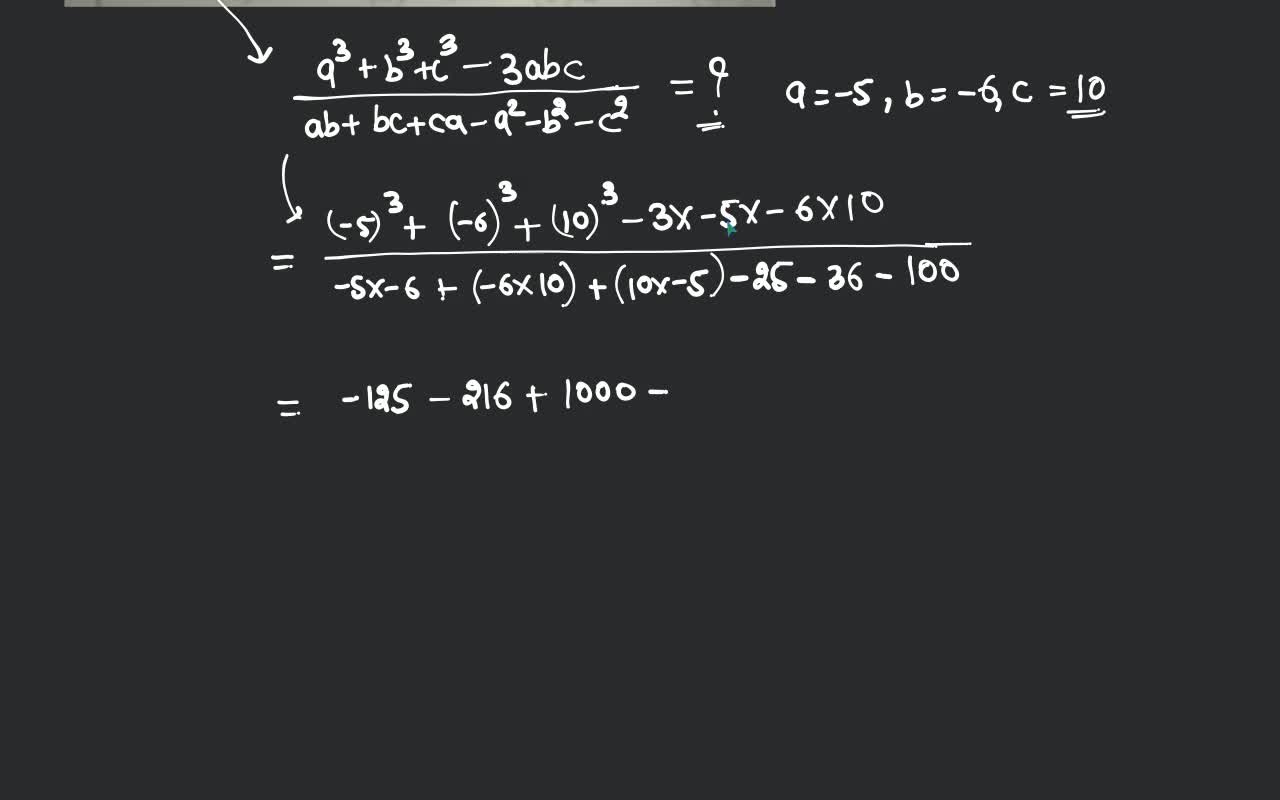 a³ + b³ + c³ - 3abc
ab + bc + ca - a² - b² - c² = ? a = -5, b = -6, c = 10
(-5)³ + (-6)³ + (10)³ - 3x - 5x - 6x10
= -5x-6 + (-6x10) + (10x-5) - 25 - 36 - 100
= -125 - 216 + 1000 -